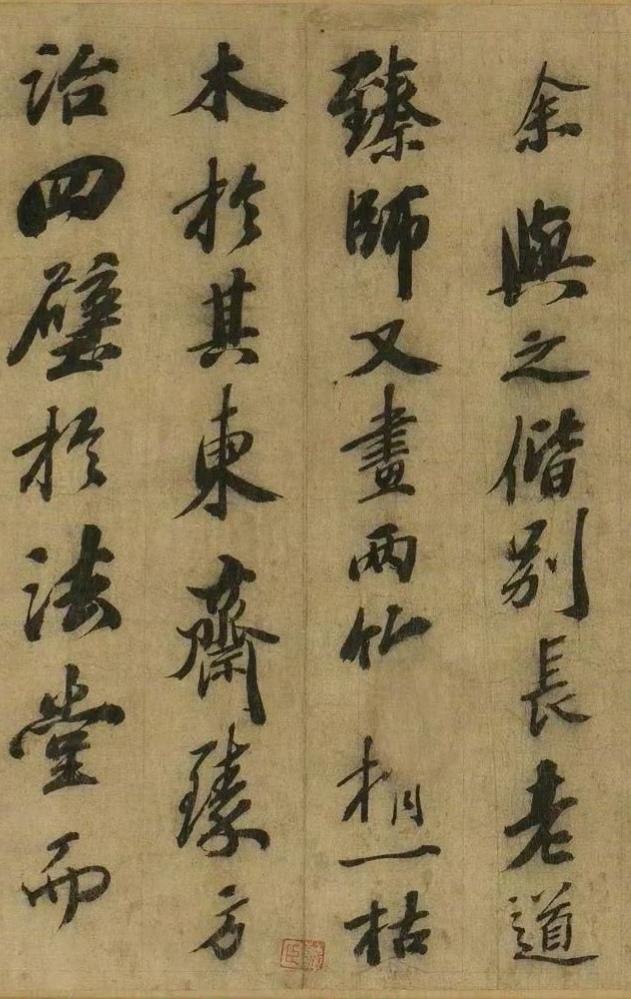 余與之偕別長老道
臻師又畫兩竹梢一枯
木於其東齋臻方
治四壁於法堂而